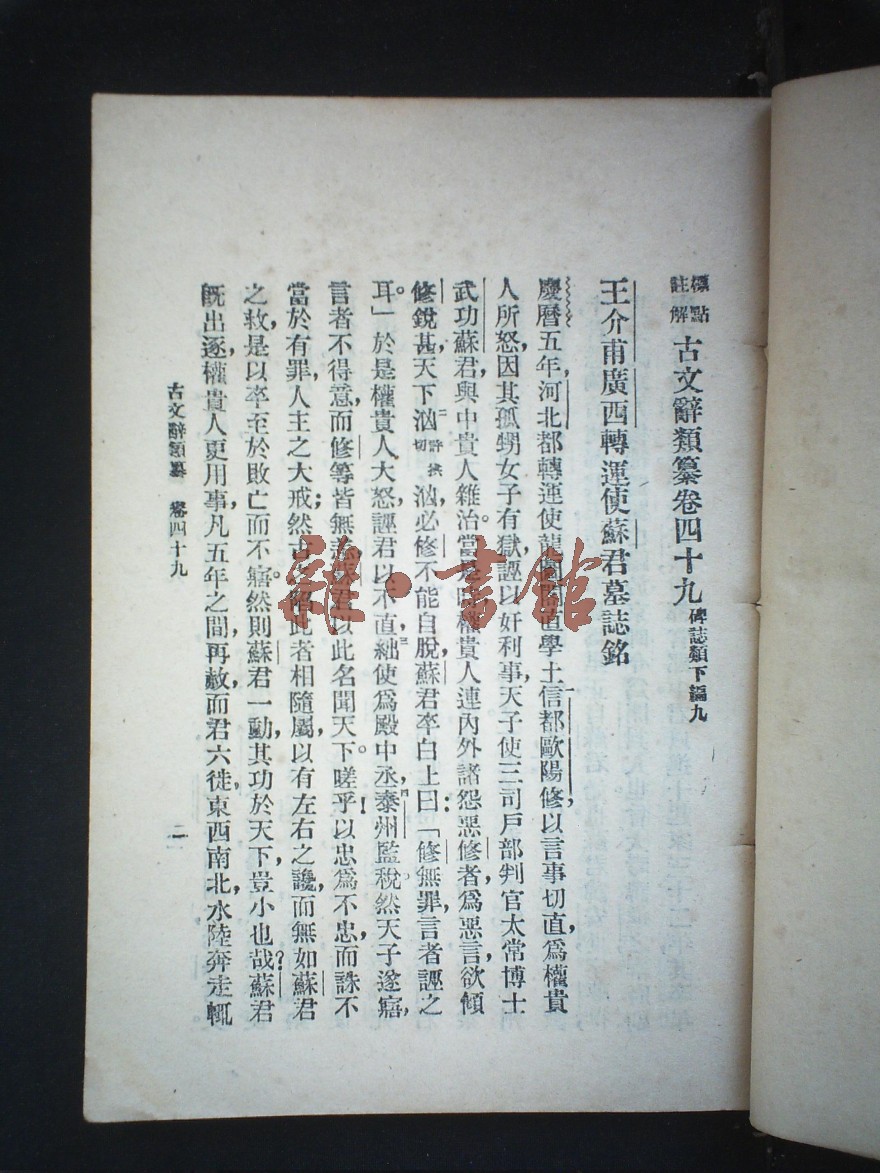 標點註解 古文辭類纂卷四十九 碑誌類下編九
王介甫廣西轉運使蘇君墓誌銘
慶曆五年,河北都轉運使龍圖閣直學士信都歐陽修,以言事切直,爲權貴
人所怒,因其孤甥女子有獄,誣以奸利事,天子使三司戶部判官太常博士
武功蘇君,與中貴人雜治。當是時,權貴人連內外諸怨惡修者,爲惡言,欲傾
修,銳甚,天下洶許拱切洶,必修不能自脫,蘇君卒白上曰:「修無罪,言者誣之
耳。」於是權貴人大怒,誣君以不直,絀使爲殿中丞,泰州監稅,然天子遂寤,
言者不得意,而修等皆無恙,蘇君以此名聞天下。嗟乎!以忠爲不忠,而誅不
當於有罪,人主之大戒;然古之陷此者相隨屬,以有左右之讒,而無如蘇君
之救,是以卒至於敗亡而不寤。然則蘇君一動,其功於天下,豈小也哉?蘇君
旣出逐,權貴人更用事,凡五年之間,再赦,而君六徙,東西南北,水陸奔走輒
古文辭類纂 卷四十九
雜·書館